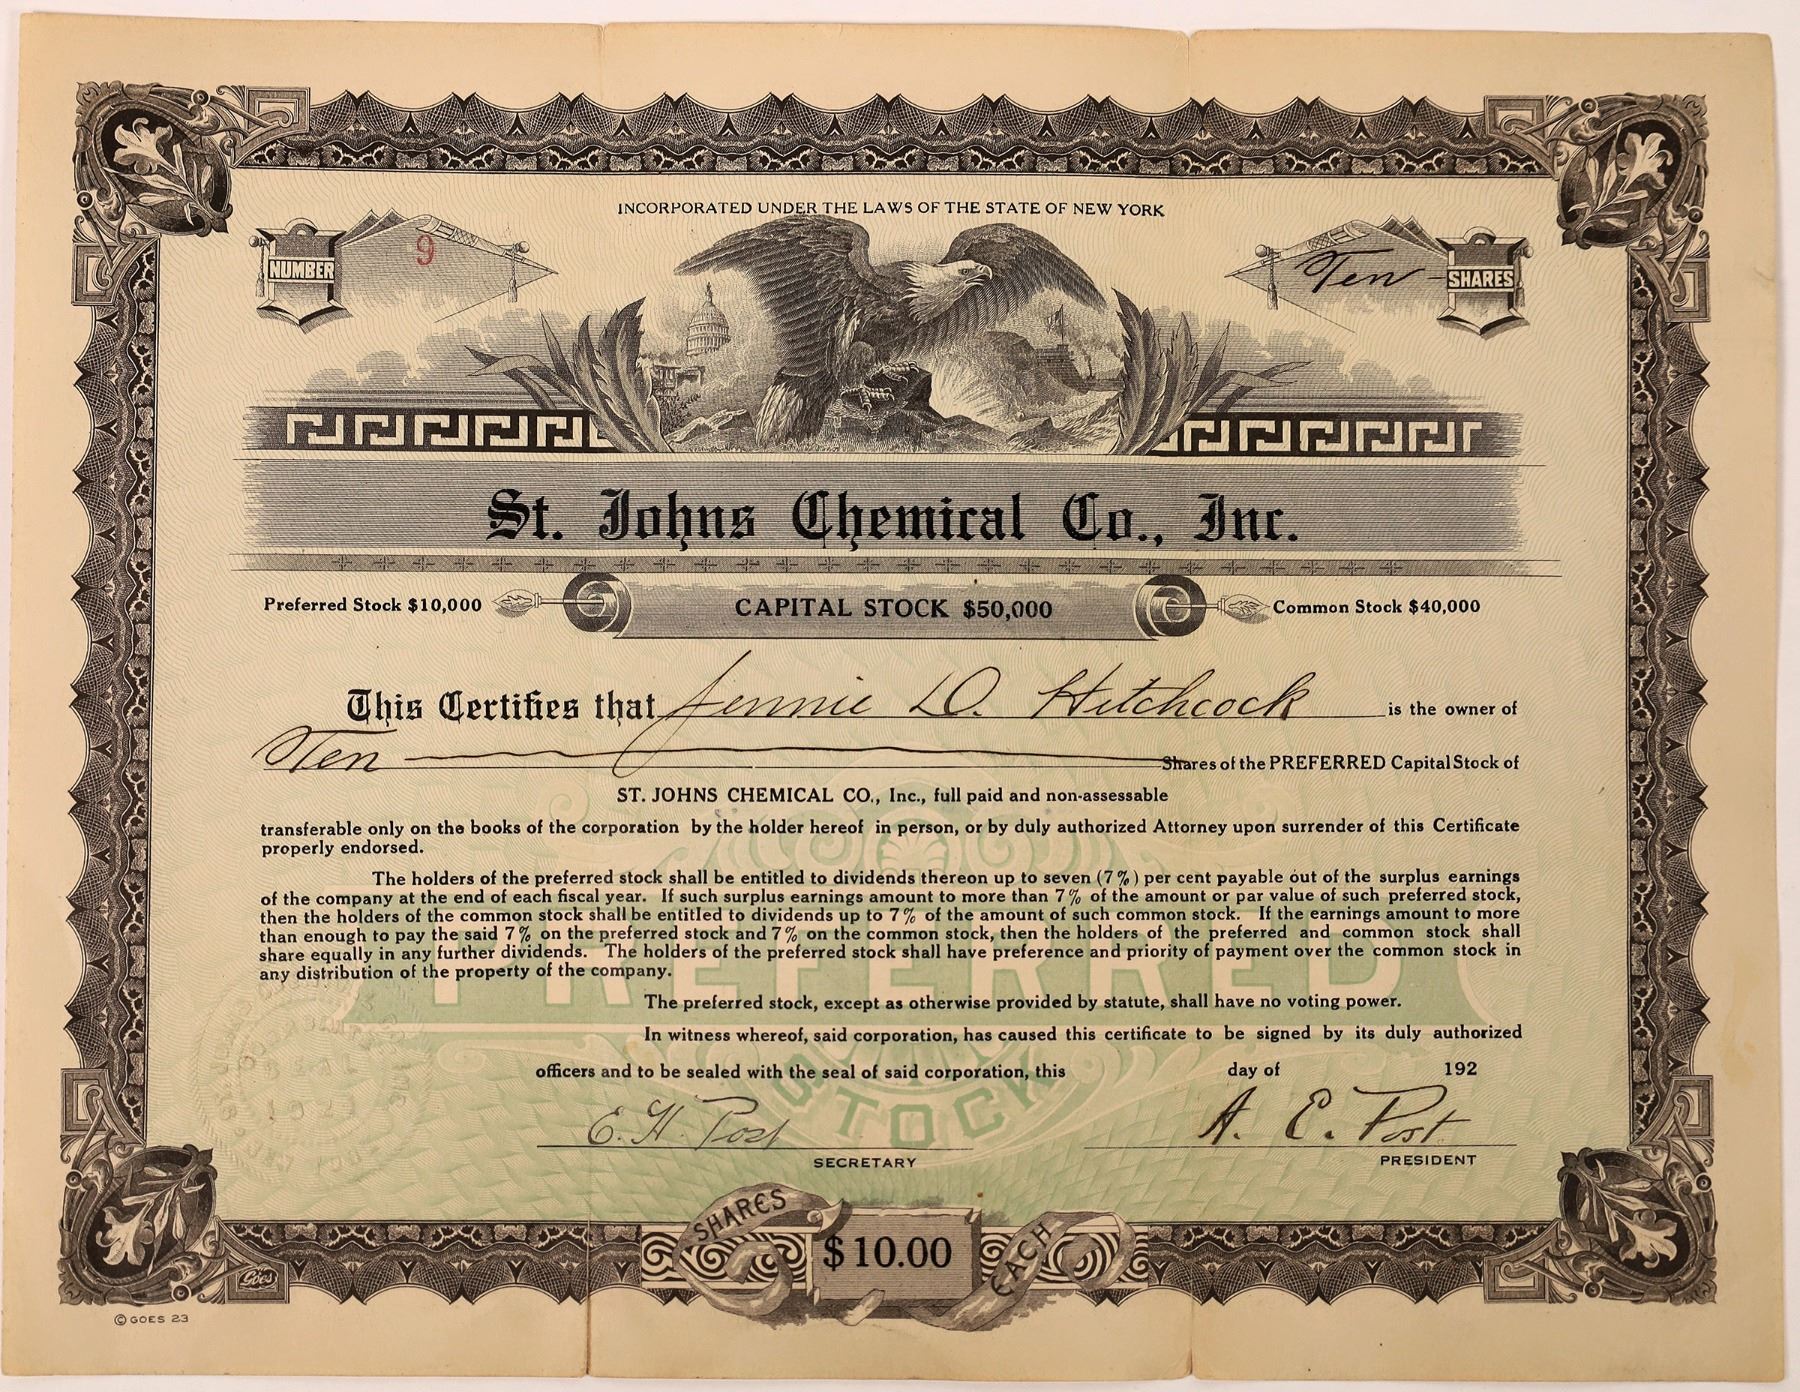 INCORPORATED UNDER THE LAWS OF THE STATE OF NEW YORK
NUMBER 9
Ten SHARES
St. Johns Chemical Co., Inc.
Preferred Stock $10,000 CAPITAL STOCK $50,000 Common Stock $40,000
This Certifies that Jennie D. Hitchcock is the owner of
Ten Shares of the PREFERRED Capital Stock of
ST. JOHNS CHEMICAL CO., Inc., full paid and non-assessable
transferable only on the books of the corporation by the holder hereof in person, or by duly authorized Attorney upon surrender of this Certificate
properly endorsed.
The holders of the preferred stock shall be entitled to dividends thereon up to seven (7%) per cent payable out of the surplus earnings
of the company at the end of each fiscal year. If such surplus earnings amount to more than 7% of the amount or par value of such preferred stock,
then the holders of the common stock shall be entitled to dividends up to 7% of the amount of such common stock. If the earnings amount to more
than enough to pay the said 7% on the preferred stock and 7% on the common stock, then the holders of the preferred and common stock shall
share equally in any further dividends. The holders of the preferred stock shall have preference and priority of payment over the common stock in
any distribution of the property of the company.
PREFERRED
The preferred stock, except as otherwise provided by statute, shall have no voting power.
In witness whereof, said corporation, has caused this certificate to be signed by its duly authorized
officers and to be sealed with the seal of said corporation, this day of 192
STOCK
E. H. Post A. E. Post
SECRETARY PRESIDENT
SHARES $10.00 EACH
Goes
© GOES 23